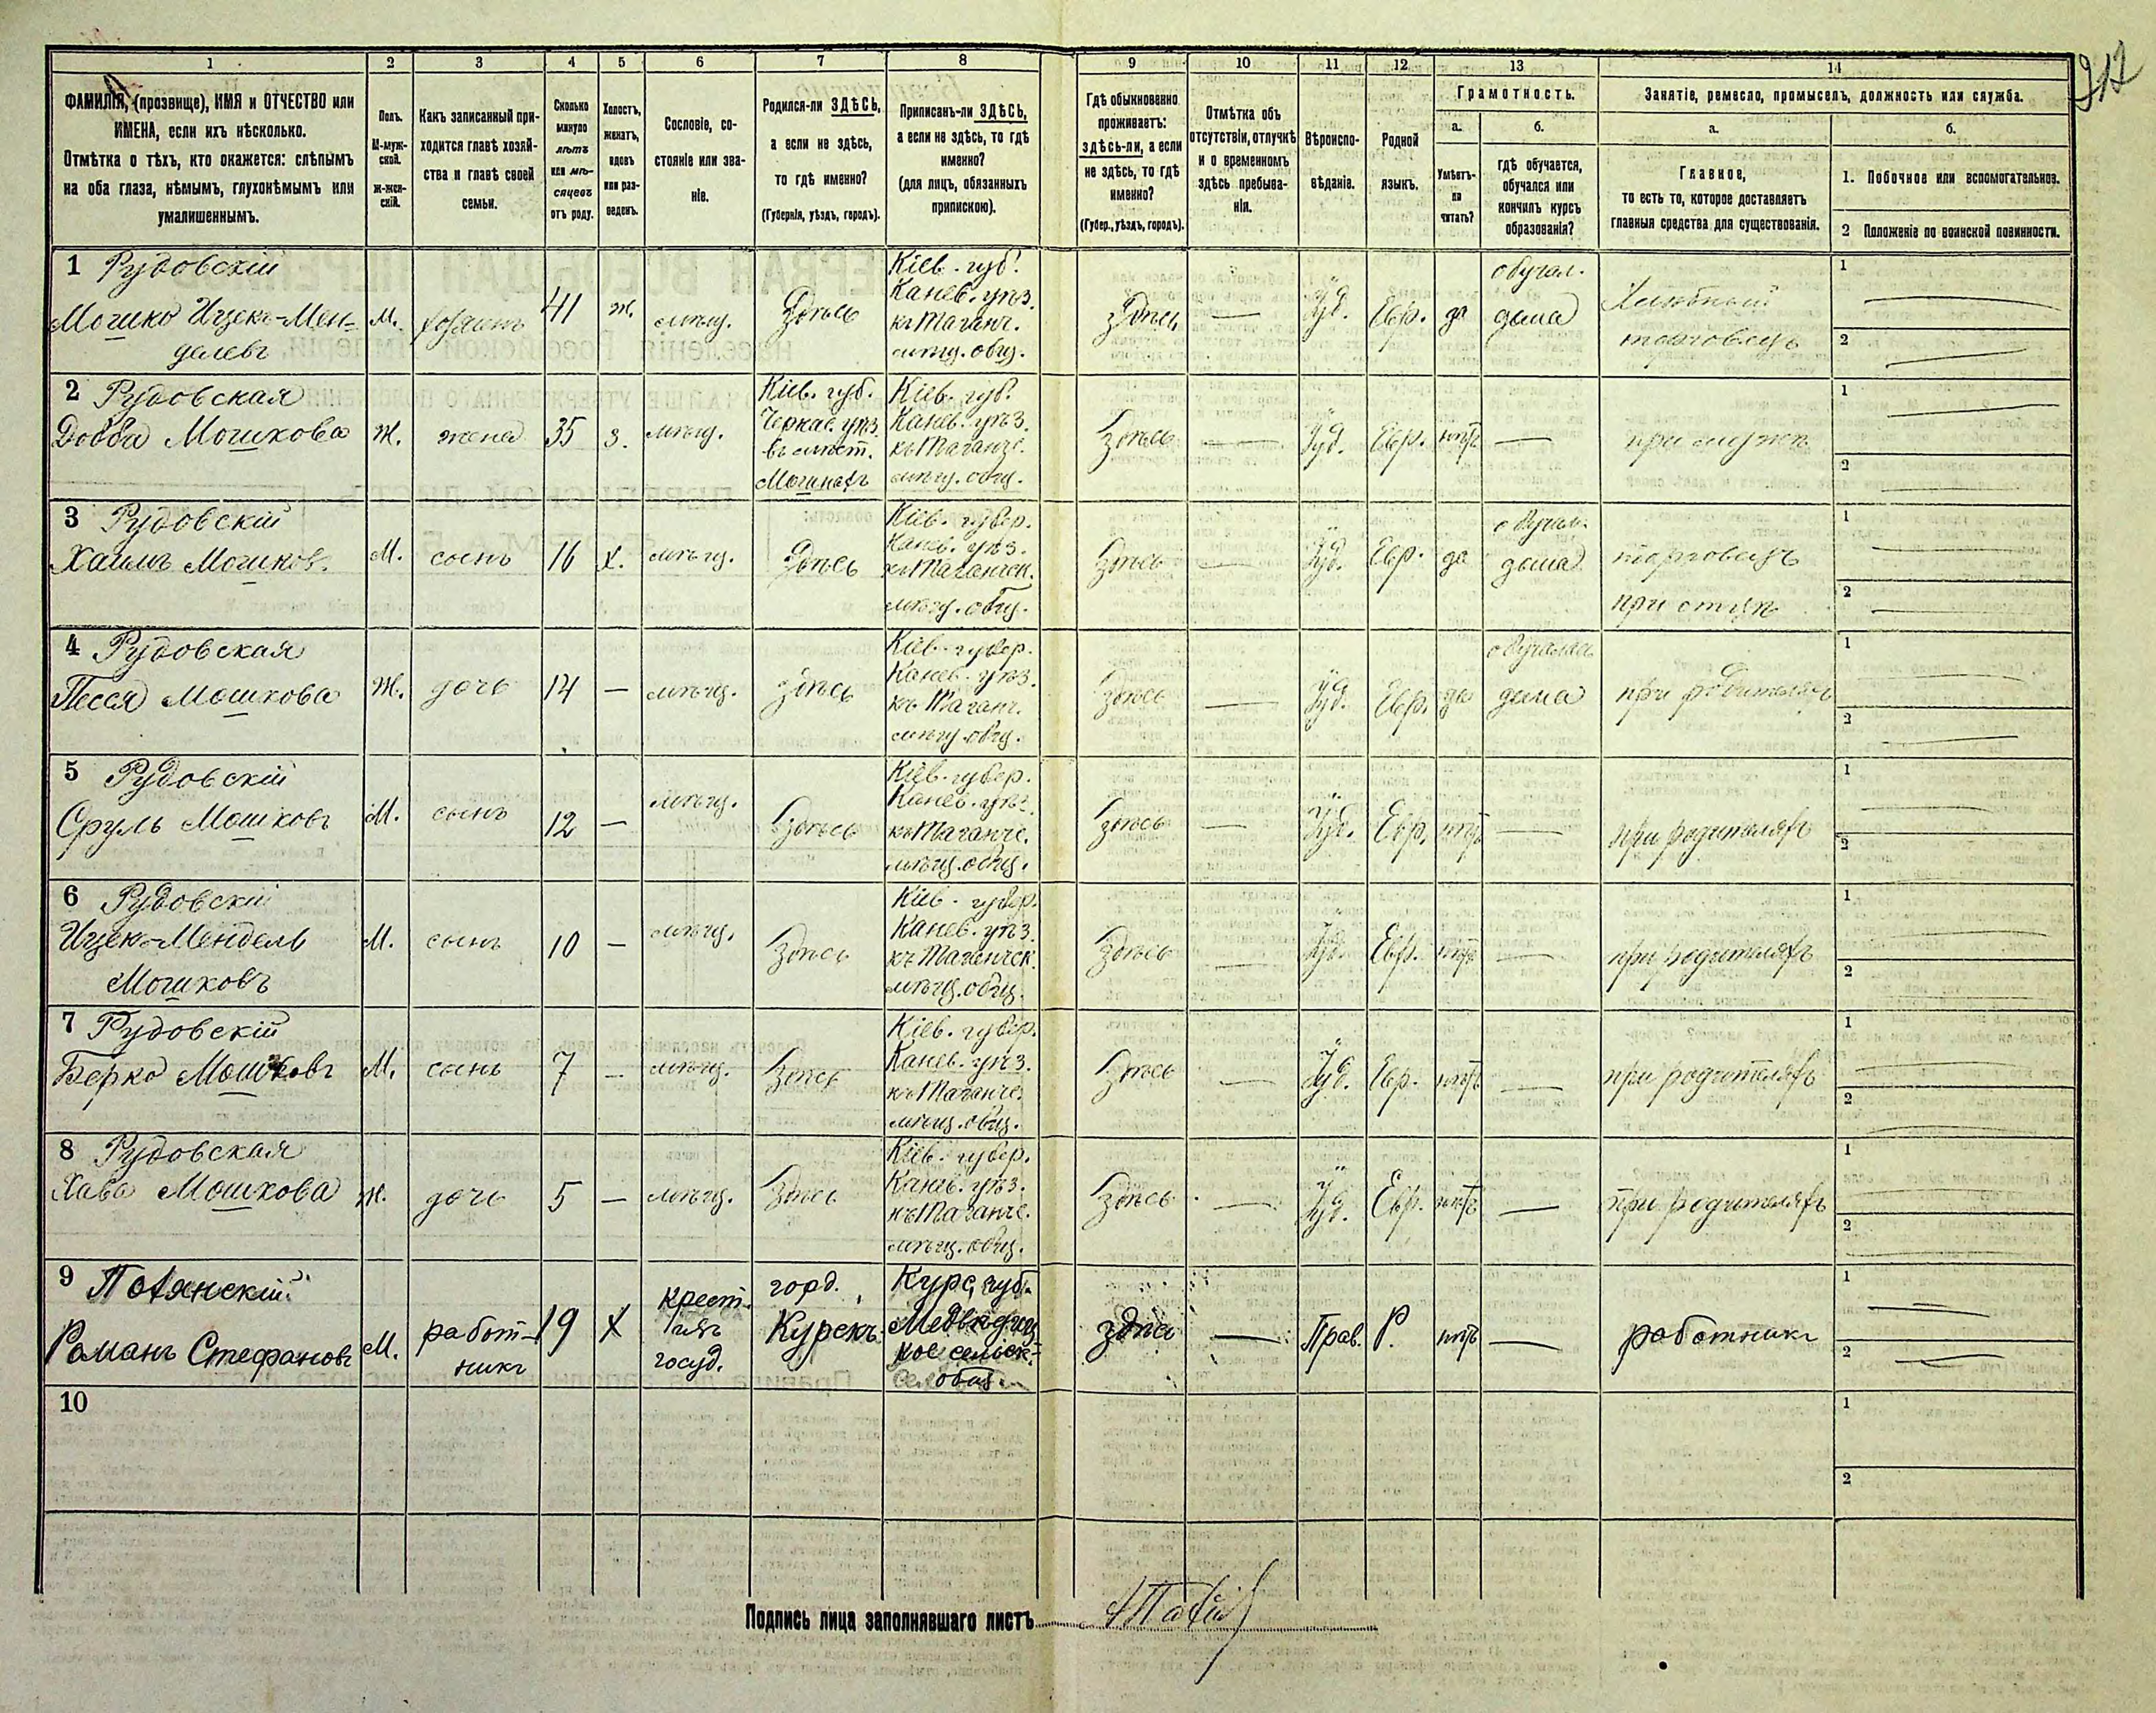 212
1 2 3 4 5 6 7 8 9 10 11 12 13 14
ФАМИЛІЯ, (прозвище), ИМЯ и ОТЧЕСТВО или
ИМЕНА, если ихъ нѣсколько.
Отмѣтка о тѣхъ, кто окажется: слѣпымъ
на оба глаза, нѣмымъ, глухонѣмымъ или
умалишеннымъ.
Полъ.
М-муж-
ской.
Ж-жен-
скій.
Какъ записанный при-
ходится главѣ хозяй-
ства и главѣ своей
семьи.
Сколько
минуло
лѣтъ
или мѣ-
сяцевъ
отъ роду.
Холостъ,
женатъ,
вдовъ
или раз-
веденъ.
Сословіе, со-
стояніе или зва-
ніе.
Родился-ли ЗДѢСЬ,
а если не здѣсь,
то гдѣ именно?
(Губернія, уѣздъ, городъ).
Приписанъ-ли ЗДѢСЬ,
а если не здѣсь, то гдѣ
именно?
(для лицъ, обязанныхъ
припискою).
Гдѣ обыкновенно
проживаетъ:
здѣсь-ли, а если
не здѣсь, то гдѣ
именно?
(Губер., уѣздъ, городъ).
Отмѣтка объ
отсутствіи, отлучкѣ
и о временномъ
здѣсь пребыва-
ніи.
Вѣроиспо-
вѣданіе.
Родной
языкъ.
Грамотность.
а.
Умѣетъ-
ли
читать?
б.
гдѣ обучается,
обучался или
кончилъ курсъ
образованія?
Занятіе, ремесло, промыселъ, должность или служба.
а.
Главное,
то есть то, которое доставляетъ
главныя средства для существованія.
б.
1. Побочное или вспомогательное.
2 Положеніе по воинской повинности.
1 Рудовскій
Мошко Ицекъ-Мен-
делевъ
М.
хозяинъ
41
ж.
мѣщ.
Здѣсь
Кіев. губ.
Канев. уѣз.
къ Таганч.
мѣщ. общ.
здѣсь
—
Іуд.
Евр.
да
обучал.
дома
Хлѣбный
торговецъ
1 —
2 —
2 Рудовская
Добба Мошкова
Ж.
жена
35
з.
мѣщ.
Кіев. губ.
Черкас. уѣз.
въ мѣст.
Мошнахъ
Кіев. губ.
Канев. уѣз.
къ Таганче.
мѣщ. общ.
здѣсь
—
Іуд.
Евр.
нѣтъ
—
при мужѣ
1 —
2 —
3 Рудовскій
Хаимъ Мошков.
М.
сынъ
16
х.
мѣщ.
Здѣсь
Кіев. губер.
Канев. уѣз.
къ Таганчск.
мѣщ. общ.
здѣсь
—
Іуд.
Евр.
да
обучал.
дома
торговецъ
при отцѣ
1 —
2 —
4 Рудовская
Песся Мошкова
Ж.
дочь
14
—
мѣщ.
здѣсь
Кіев. губер.
Канев. уѣз.
къ Таганч.
мѣщ. общ.
здѣсь
—
Іуд.
Евр.
да
обучалась
дома
при родителяхъ
1 —
2 —
5 Рудовскій
Сруль Мошковъ
М.
сынъ
12
—
мѣщ.
здѣсь
Кіев. губер.
Канев. уѣз.
къ Таганче.
мѣщ. общ.
здѣсь
—
Іуд.
Евр.
нѣтъ
—
при родителяхъ
1 —
2 —
6 Рудовскій
Ицек-Мендель
Мошковъ
М.
сынъ
10
—
мѣщ.
здѣсь
Кіев. губер.
Канев. уѣз.
къ Таганчск.
мѣщ. общ.
здѣсь
—
Іуд.
Евр.
нѣтъ
—
при родителяхъ
1 —
2 —
7 Рудовскій
Берко Мошковъ
М.
сынъ
7
—
мѣщ.
здѣсь
Кіев. губер.
Канев. уѣз.
къ Таганче.
мѣщ. общ.
здѣсь
—
Іуд.
Евр.
нѣтъ
—
при родителяхъ
1 —
2 —
8 Рудовская
Хава Мошкова
Ж.
дочь
5
—
мѣщ.
здѣсь
Кіев. губер.
Канев. уѣз.
къ Таганче.
мѣщ. общ.
здѣсь
—
Іуд.
Евр.
нѣтъ
—
при родителяхъ
1 —
2 —
9
Романъ Стефановъ
М.
работ-
никъ
19
Х
крест-
госуд.
горд.
Курскъ
Курс. губ.
сельск.
общ.
здѣсь
—
Прав.
Р.
нѣтъ
—
работникъ
1 —
2 —
10
1
2
Подпись лица заполнявшаго листъ